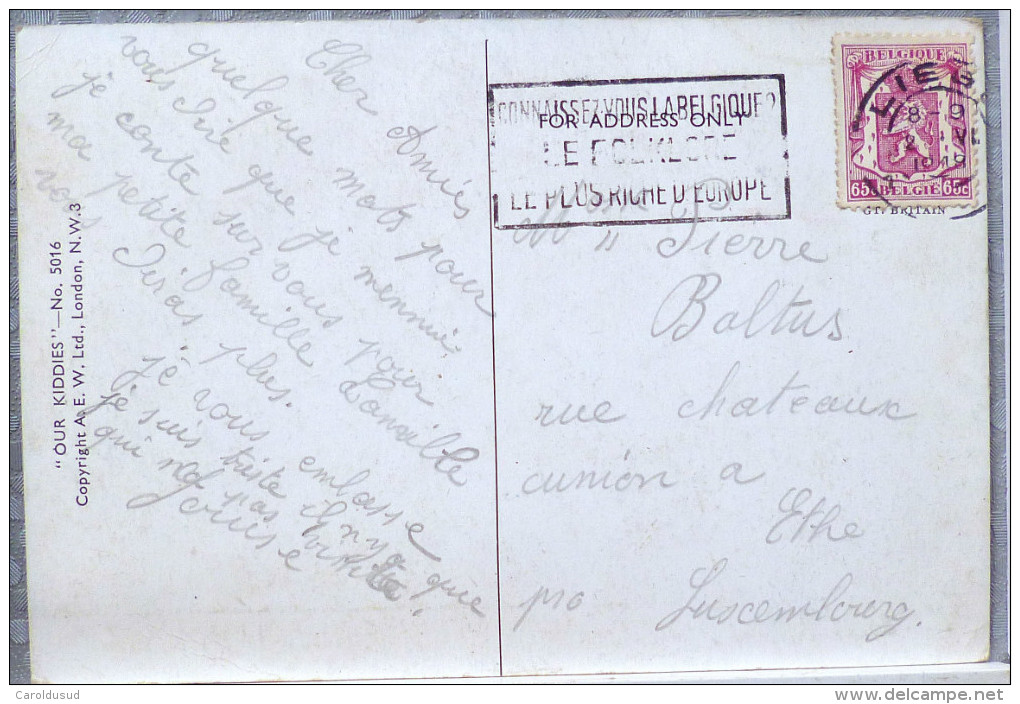 Cher Amiés
quelque mots pour
vous dire que je mennui
je conte sur vous pour
ma petite famille
vous dirai plus.
je vous embasse
je suis triste que
qui pas
Louise
"OUR KIDDIES"—No. 5016
Copyright A. E. W. Ltd., London, N.W.3
CONNAISSEZ-VOUS LA BELGIQUE?
FOR ADDRESS ONLY
LE FOLKLORE
LE PLUS RICHE D'EUROPE
BELGIQUE
LIEGE
8-9
1949
65c BELGIË 65c
GT. BRITAIN
Pierre
Baltus
rue chateaux
cunion a
Ethe
pro Luxembourg.
Caroldusud
www.delcampe.net